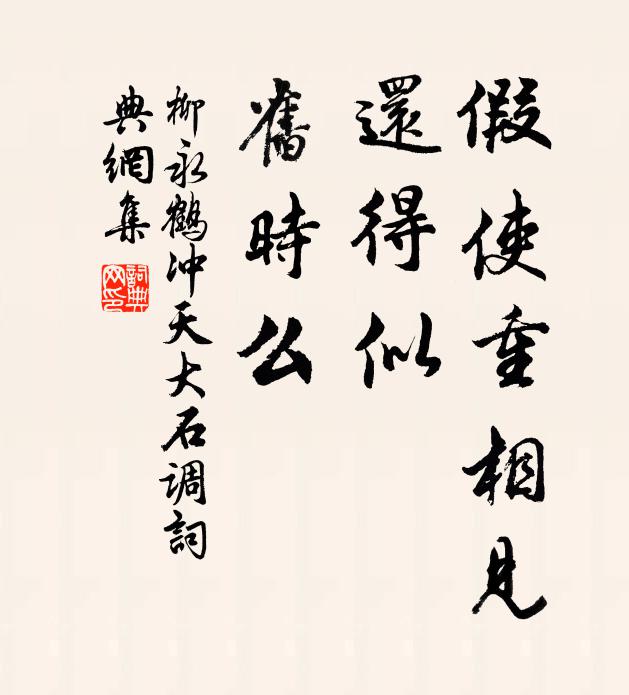 假使重相見
還得似
舊時么
柳永鶴冲天大石调詞
典網集
詞典网印